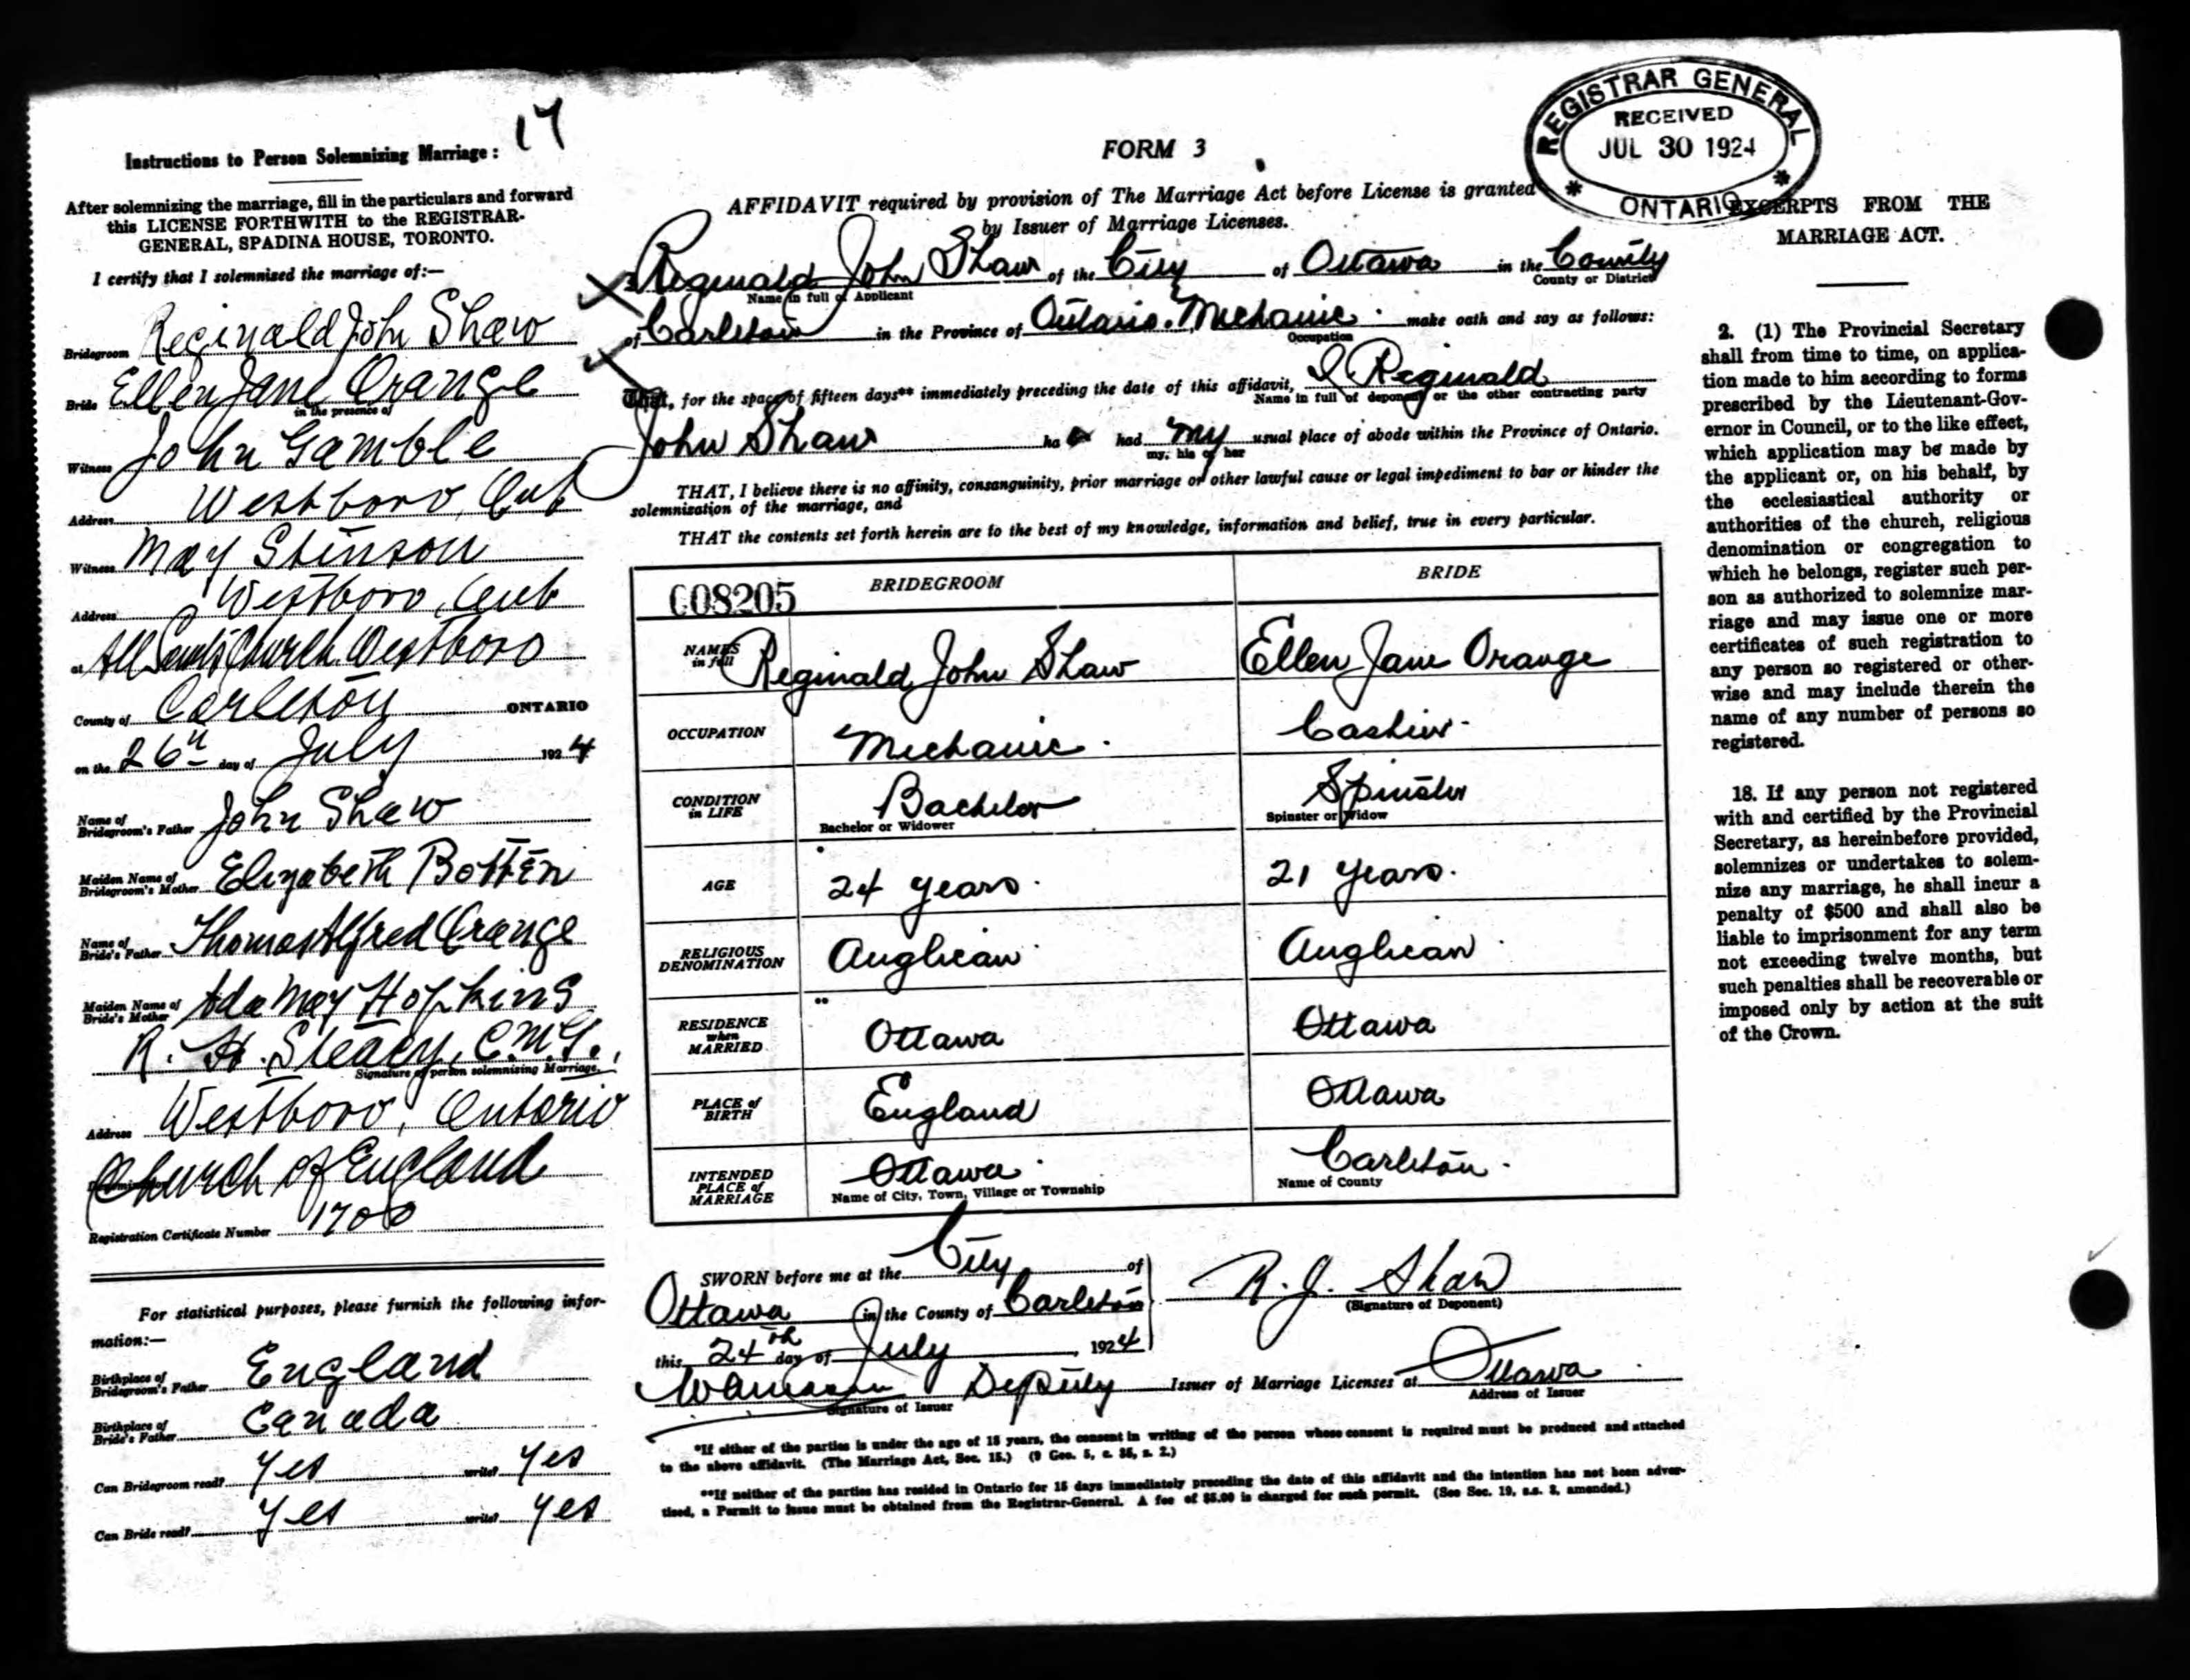 17
Instructions to Person Solemnizing Marriage:
After solemnizing the marriage, fill in the particulars and forward
this LICENSE FORTHWITH to the REGISTRAR-
GENERAL, SPADINA HOUSE, TORONTO.
I certify that I solemnized the marriage of:—
Bridegroom Reginald John Shaw
Bride Ellen Jane Orange
in the presence of
Witness John Gamble
Address Westboro, Ont
Witness May Stinson
Address Westboro, Ont
at All Saints Church Westboro
County of Carleton ONTARIO
on the 26th day of July 1924
Name of
Bridegroom's Father John Shaw
Maiden Name of
Bridegroom's Mother Elizabeth Botten
Name of
Bride's Father Thomas Alfred Orange
Maiden Name of
Bride's Mother Ada May Hopkins
R. H. Steacy, C.M.G.,
Signature of person solemnizing Marriage.
Address Westboro, Ontario
Church of England
Registration Certificate Number 1700
For statistical purposes, please furnish the following infor-
mation:—
Birthplace of
Bridegroom's Father England
Birthplace of
Bride's Father Canada
Can Bridegroom read? Yes write? Yes
Can Bride read? Yes write? Yes
FORM 3
AFFIDAVIT required by provision of The Marriage Act before License is granted
by Issuer of Marriage Licenses.
I, Reginald John Shaw of the City of Ottawa in the County
Name in full of Applicant County or District
of Carleton in the Province of Ontario. Mechanic. make oath and say as follows:
Occupation
That, for the space of fifteen days** immediately preceding the date of this affidavit, I Reginald
Name in full of deponent or the other contracting party
John Shaw ha had my usual place of abode within the Province of Ontario.
my, his or her
THAT, I believe there is no affinity, consanguinity, prior marriage or other lawful cause or legal impediment to bar or hinder the
solemnization of the marriage, and
THAT the contents set forth herein are to the best of my knowledge, information and belief, true in every particular.
008205 BRIDEGROOM BRIDE
NAMES
in full Reginald John Shaw Ellen Jane Orange
OCCUPATION Mechanic. Cashier.
CONDITION
in LIFE Bachelor Spinster
Bachelor or Widower Spinster or Widow
AGE 24 years. 21 years.
RELIGIOUS
DENOMINATION Anglican Anglican
RESIDENCE
when
MARRIED Ottawa Ottawa
PLACE of
BIRTH England Ottawa
INTENDED
PLACE of
MARRIAGE Ottawa Carleton.
Name of City, Town, Village or Township Name of County
SWORN before me at the City of
Ottawa in the County of Carleton
this 24th day of July, 1924
R. J. Shaw
(Signature of Deponent)
Deputy Issuer of Marriage Licenses at Ottawa
Signature of Issuer Address of Issuer
*If either of the parties is under the age of 18 years, the consent in writing of the person whose consent is required must be produced and attached
to the above affidavit. (The Marriage Act, Sec. 15.) (9 Geo. 5, c. 35, s. 2.)
**If neither of the parties has resided in Ontario for 15 days immediately preceding the date of this affidavit and the intention has not been adver-
tised, a Permit to Issue must be obtained from the Registrar-General. A fee of $5.00 is charged for such permit. (See Sec. 19, s.s. 3, amended.)
REGISTRAR GENERAL
RECEIVED
JUL 30 1924
ONTARIO
EXCERPTS FROM THE
MARRIAGE ACT.
2. (1) The Provincial Secretary
shall from time to time, on applica-
tion made to him according to forms
prescribed by the Lieutenant-Gov-
ernor in Council, or to the like effect,
which application may be made by
the applicant or, on his behalf, by
the ecclesiastical authority or
authorities of the church, religious
denomination or congregation to
which he belongs, register such per-
son as authorized to solemnize mar-
riage and may issue one or more
certificates of such registration to
any person so registered or other-
wise and may include therein the
name of any number of persons so
registered.
18. If any person not registered
with and certified by the Provincial
Secretary, as hereinbefore provided,
solemnizes or undertakes to solem-
nize any marriage, he shall incur a
penalty of $500 and shall also be
liable to imprisonment for any term
not exceeding twelve months, but
such penalties shall be recoverable or
imposed only by action at the suit
of the Crown.